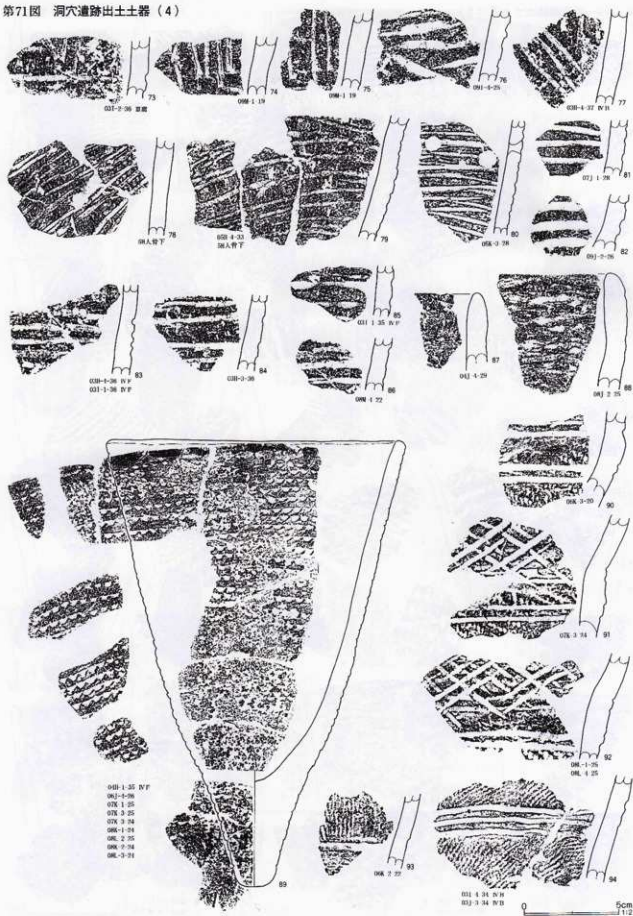 第71図 洞穴遺跡出土土器（4）
73
03I-2-36 Ⅱ層
74
09M-1 19
75
09M-1 19
76
09I-4-25
77
03H-4-37 ⅣB
78
5H人骨下
79
05H-4-33
5H人骨下
80
05K-3-28
81
07J-1-28
82
09J-2-26
83
03H-4-38 ⅣF
03I-1-38 ⅣF
84
03H-3-38
85
03I-1-35 ⅣF
86
08M-4 22
87
04J-4-29
88
08J 2 25
89
04H-1-35 ⅣF
06J-4-26
07K 1-25
07K 3-25
07K 3 24
08K-1-24
08L 2 25
08K-2-24
08L-3-24
90
08K-3-20
91
07K-3 24
92
08L-1-25
08L 4 25
93
06K 2 22
94
03I-4 34 ⅣB
03J-3 34 ⅣB
0 5cm
1:2